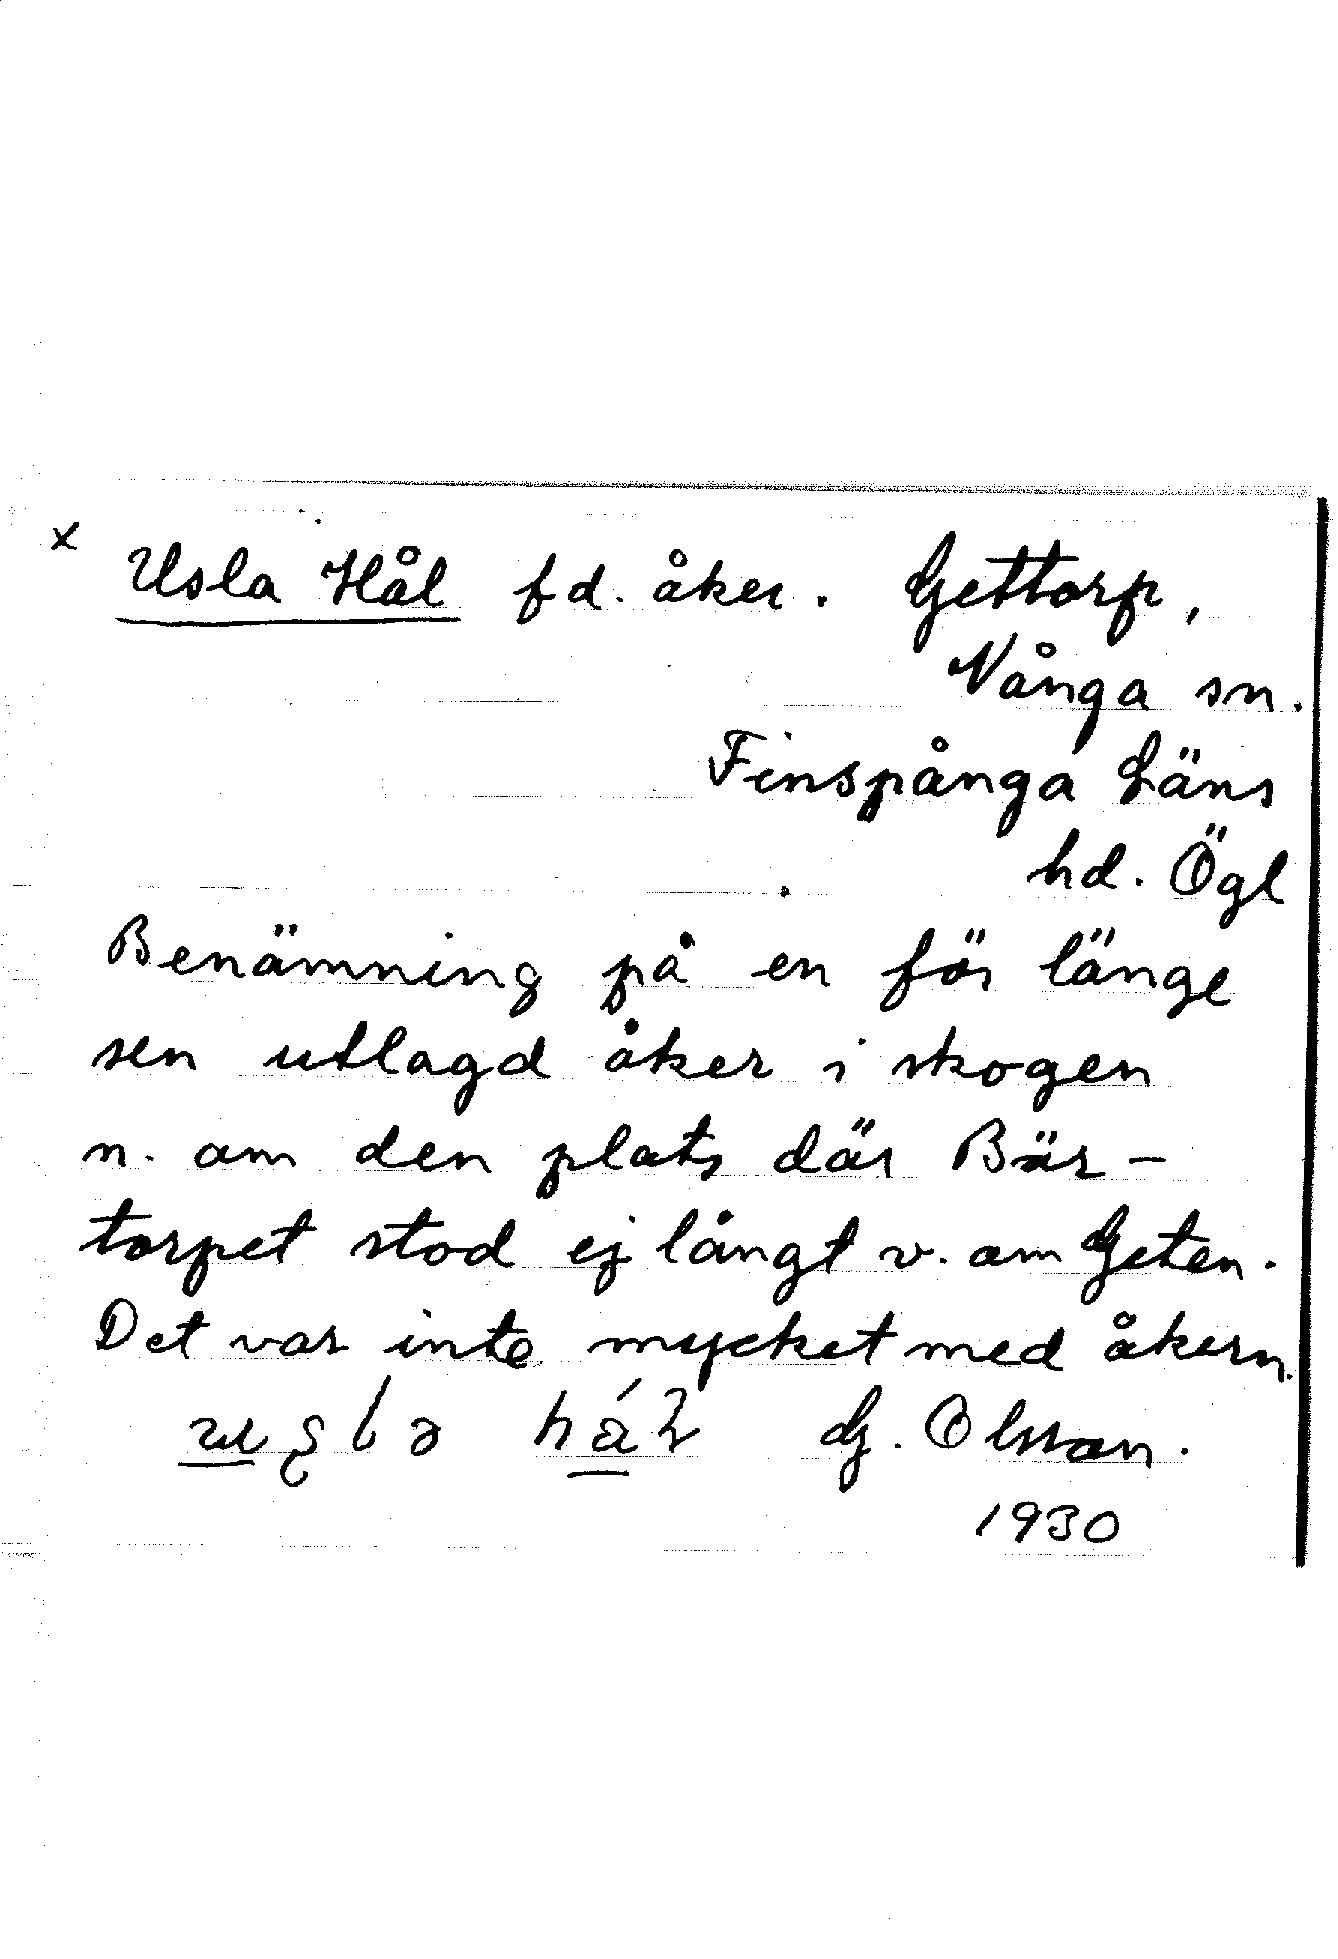 x Usla Hål fd. åker. Gettorp,
Vånga sn.
Finspånga Läns
hd. Ögl
Benämning på en för länge
sen utlagd åker i skogen
n. om den plats där Bär-
torpet stod ej långt v. om Geten.
Det var inte mycket med åkern.
G. Olsson.
1930